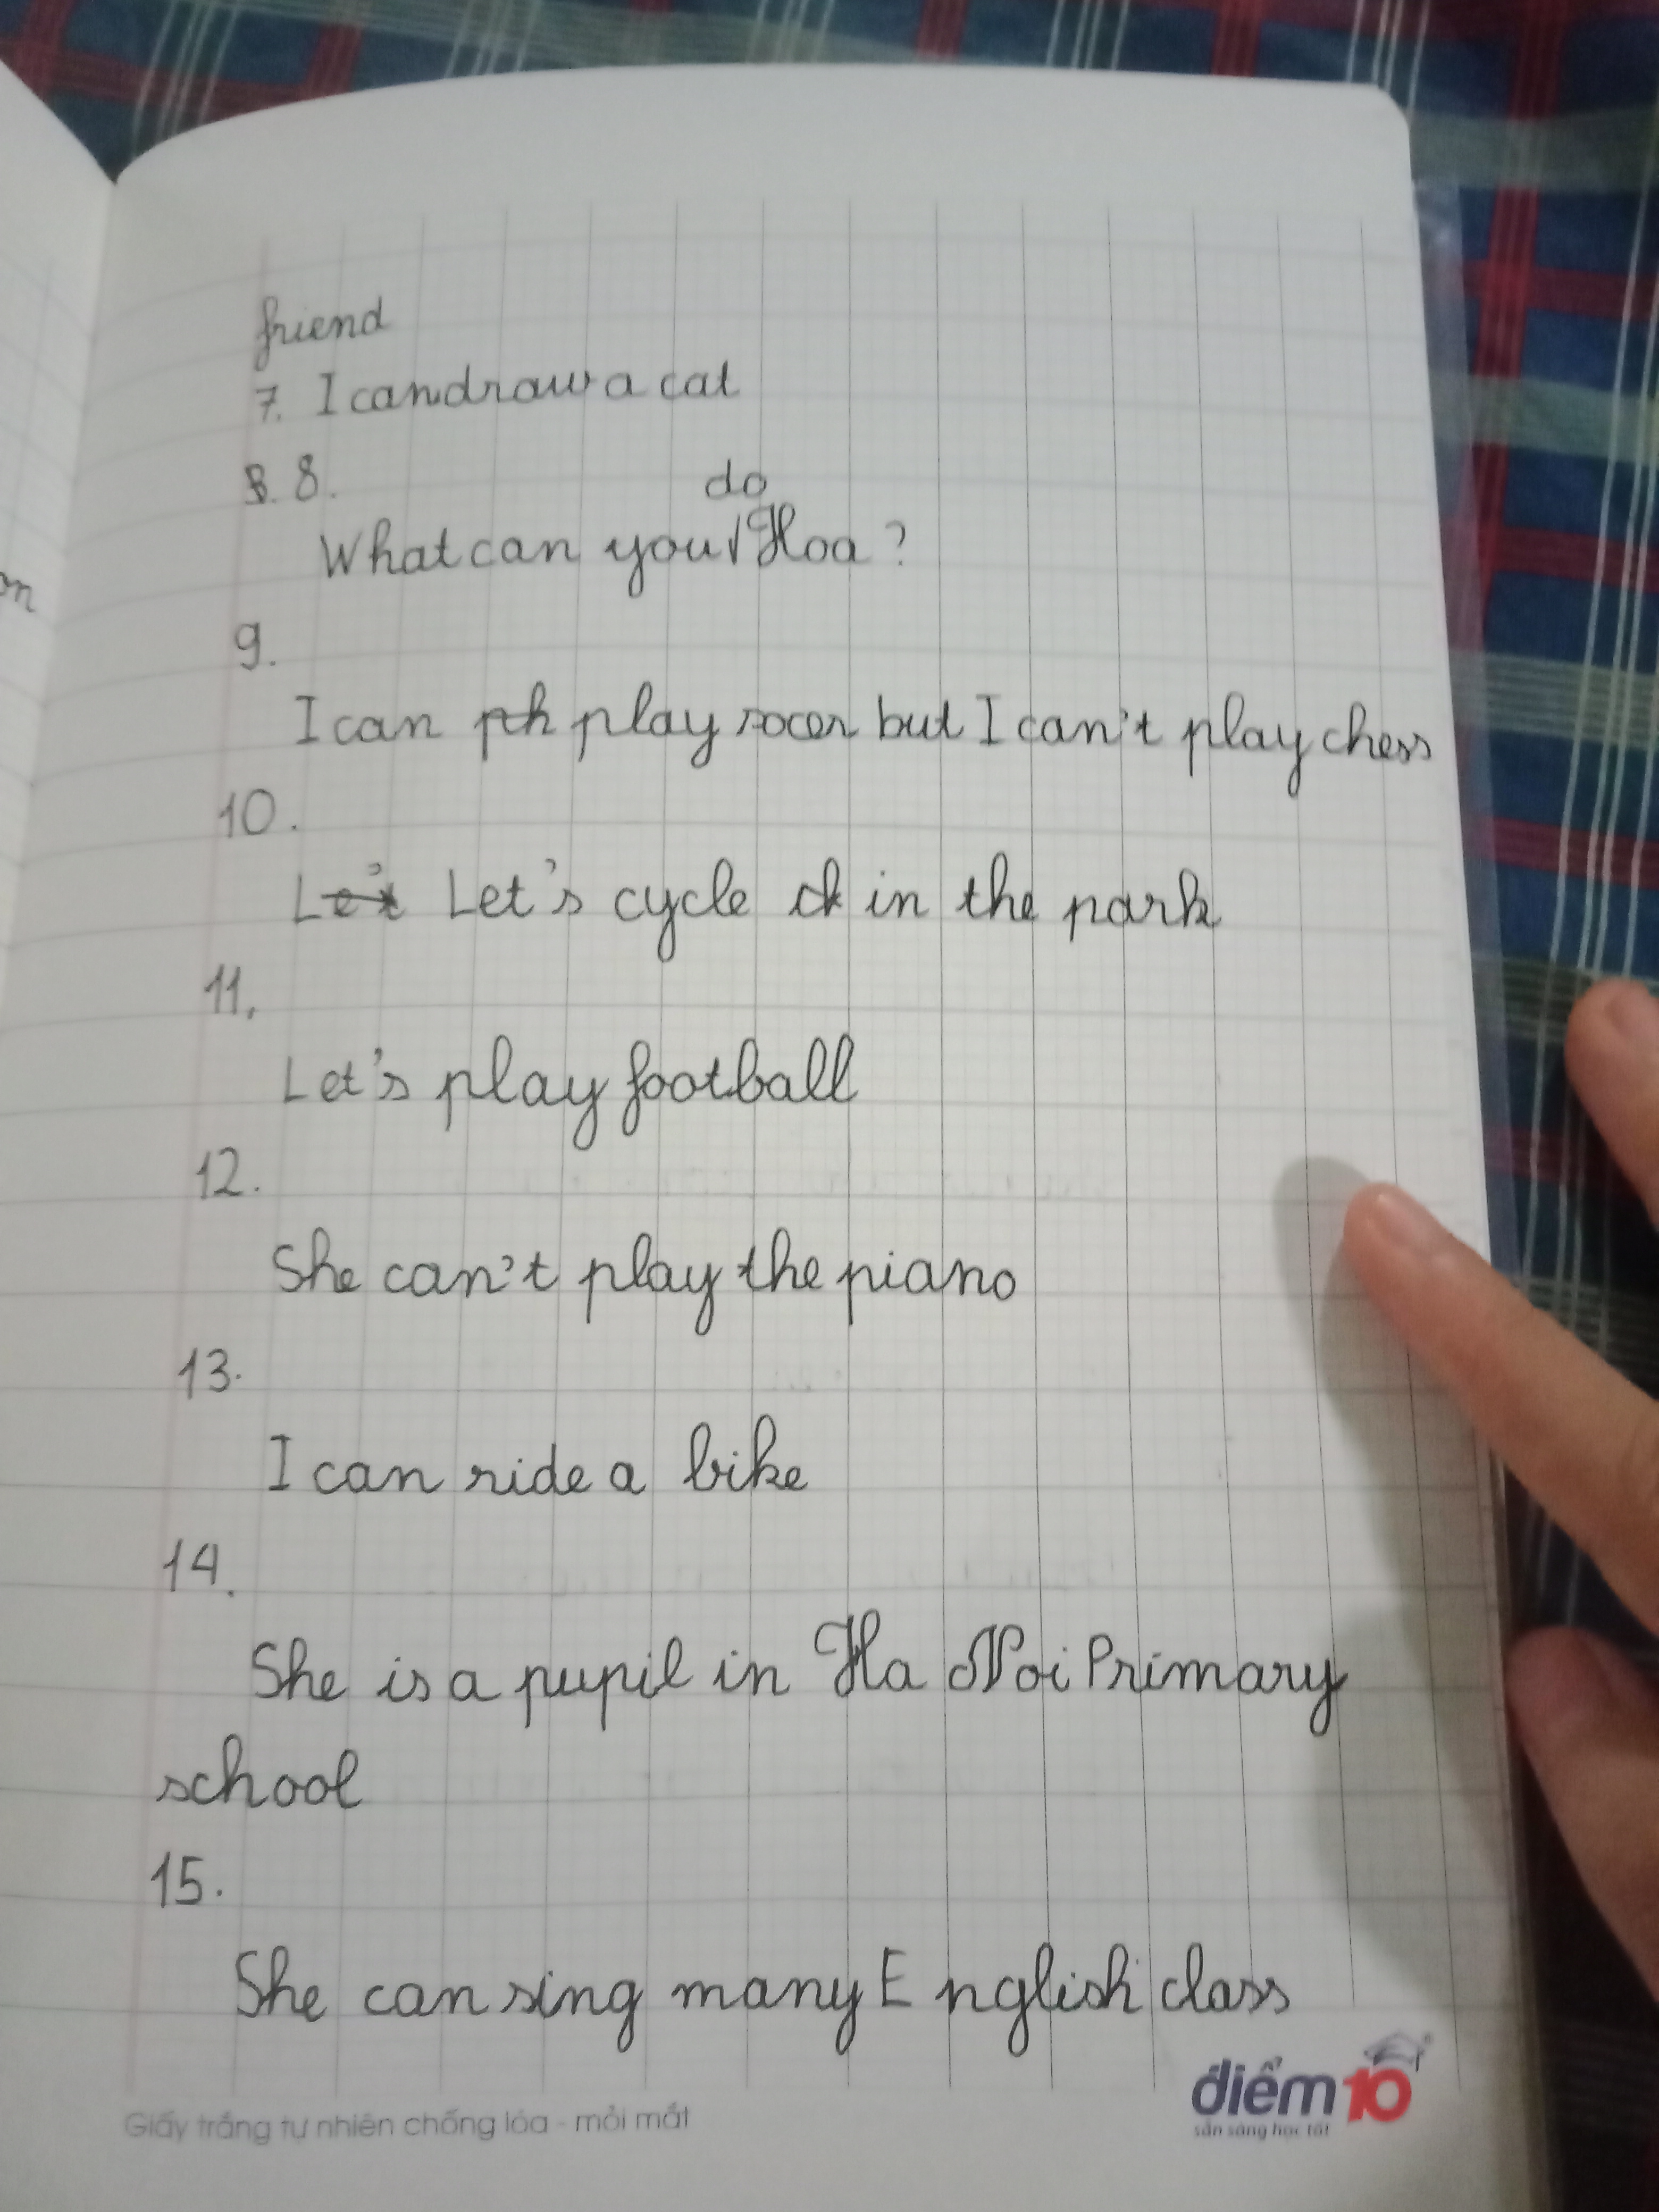 friend
7. I can draw a cat
8. 8.
do
What can you √ Hoa ?
9.
I can ph play socer but I can't play chess
10.
Le't Let's cycle ck in the park
11,
Let's play football
12.
She can't play the piano
13.
I can ride a bike
14.
She is a pupil in Ha Noi Primary
school
15.
She can sing many E nglish class
on
điểm 10
sẵn sàng học tốt
Giấy trắng tự nhiên chống lóa - mỏi mắt